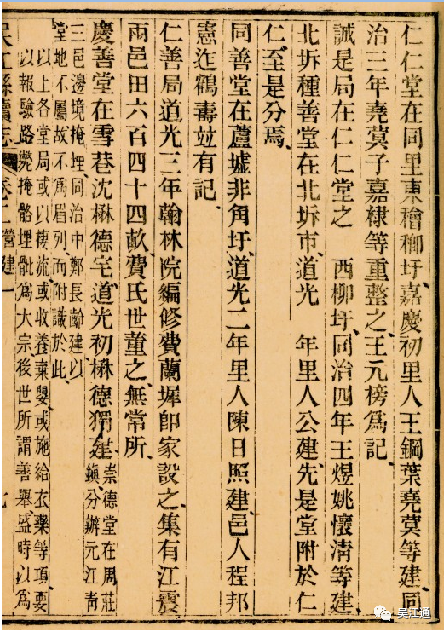 仁仁堂在同里東檜柳圩嘉慶初里人王鋼葉堯蓂等建同
治三年堯蓂子嘉棣等重整之王元榜爲記
誠是局在仁仁堂之　西柳圩同治四年王煜姚懷清等建
北坼種善堂在北坼市道光　年里人公建先是堂附於仁
仁至是分焉
同善堂在蘆墟非角圩道光二年里人陳日照建邑人程邦
憲迮鶴壽竝有記
仁善局道光三年翰林院編修費蘭墀卽家設之集有江震
兩邑田六百四十四畝費氏世董之無常所
慶善堂在雪巷沈楙德宅道光初楙德獨建
崇德堂在周莊
鎮分辦元江青
三邑邊境掩埋同治中鄭長齡建以
堂地不屬故不爲眉列而附識於此
以上各堂局或以樓流或收養棄嬰或施給衣藥等項要
以報驗路斃掩骼埋骴爲大宗後世所謂善舉盛時以爲
吳江縣續志
卷二
營建一
七
吴江通